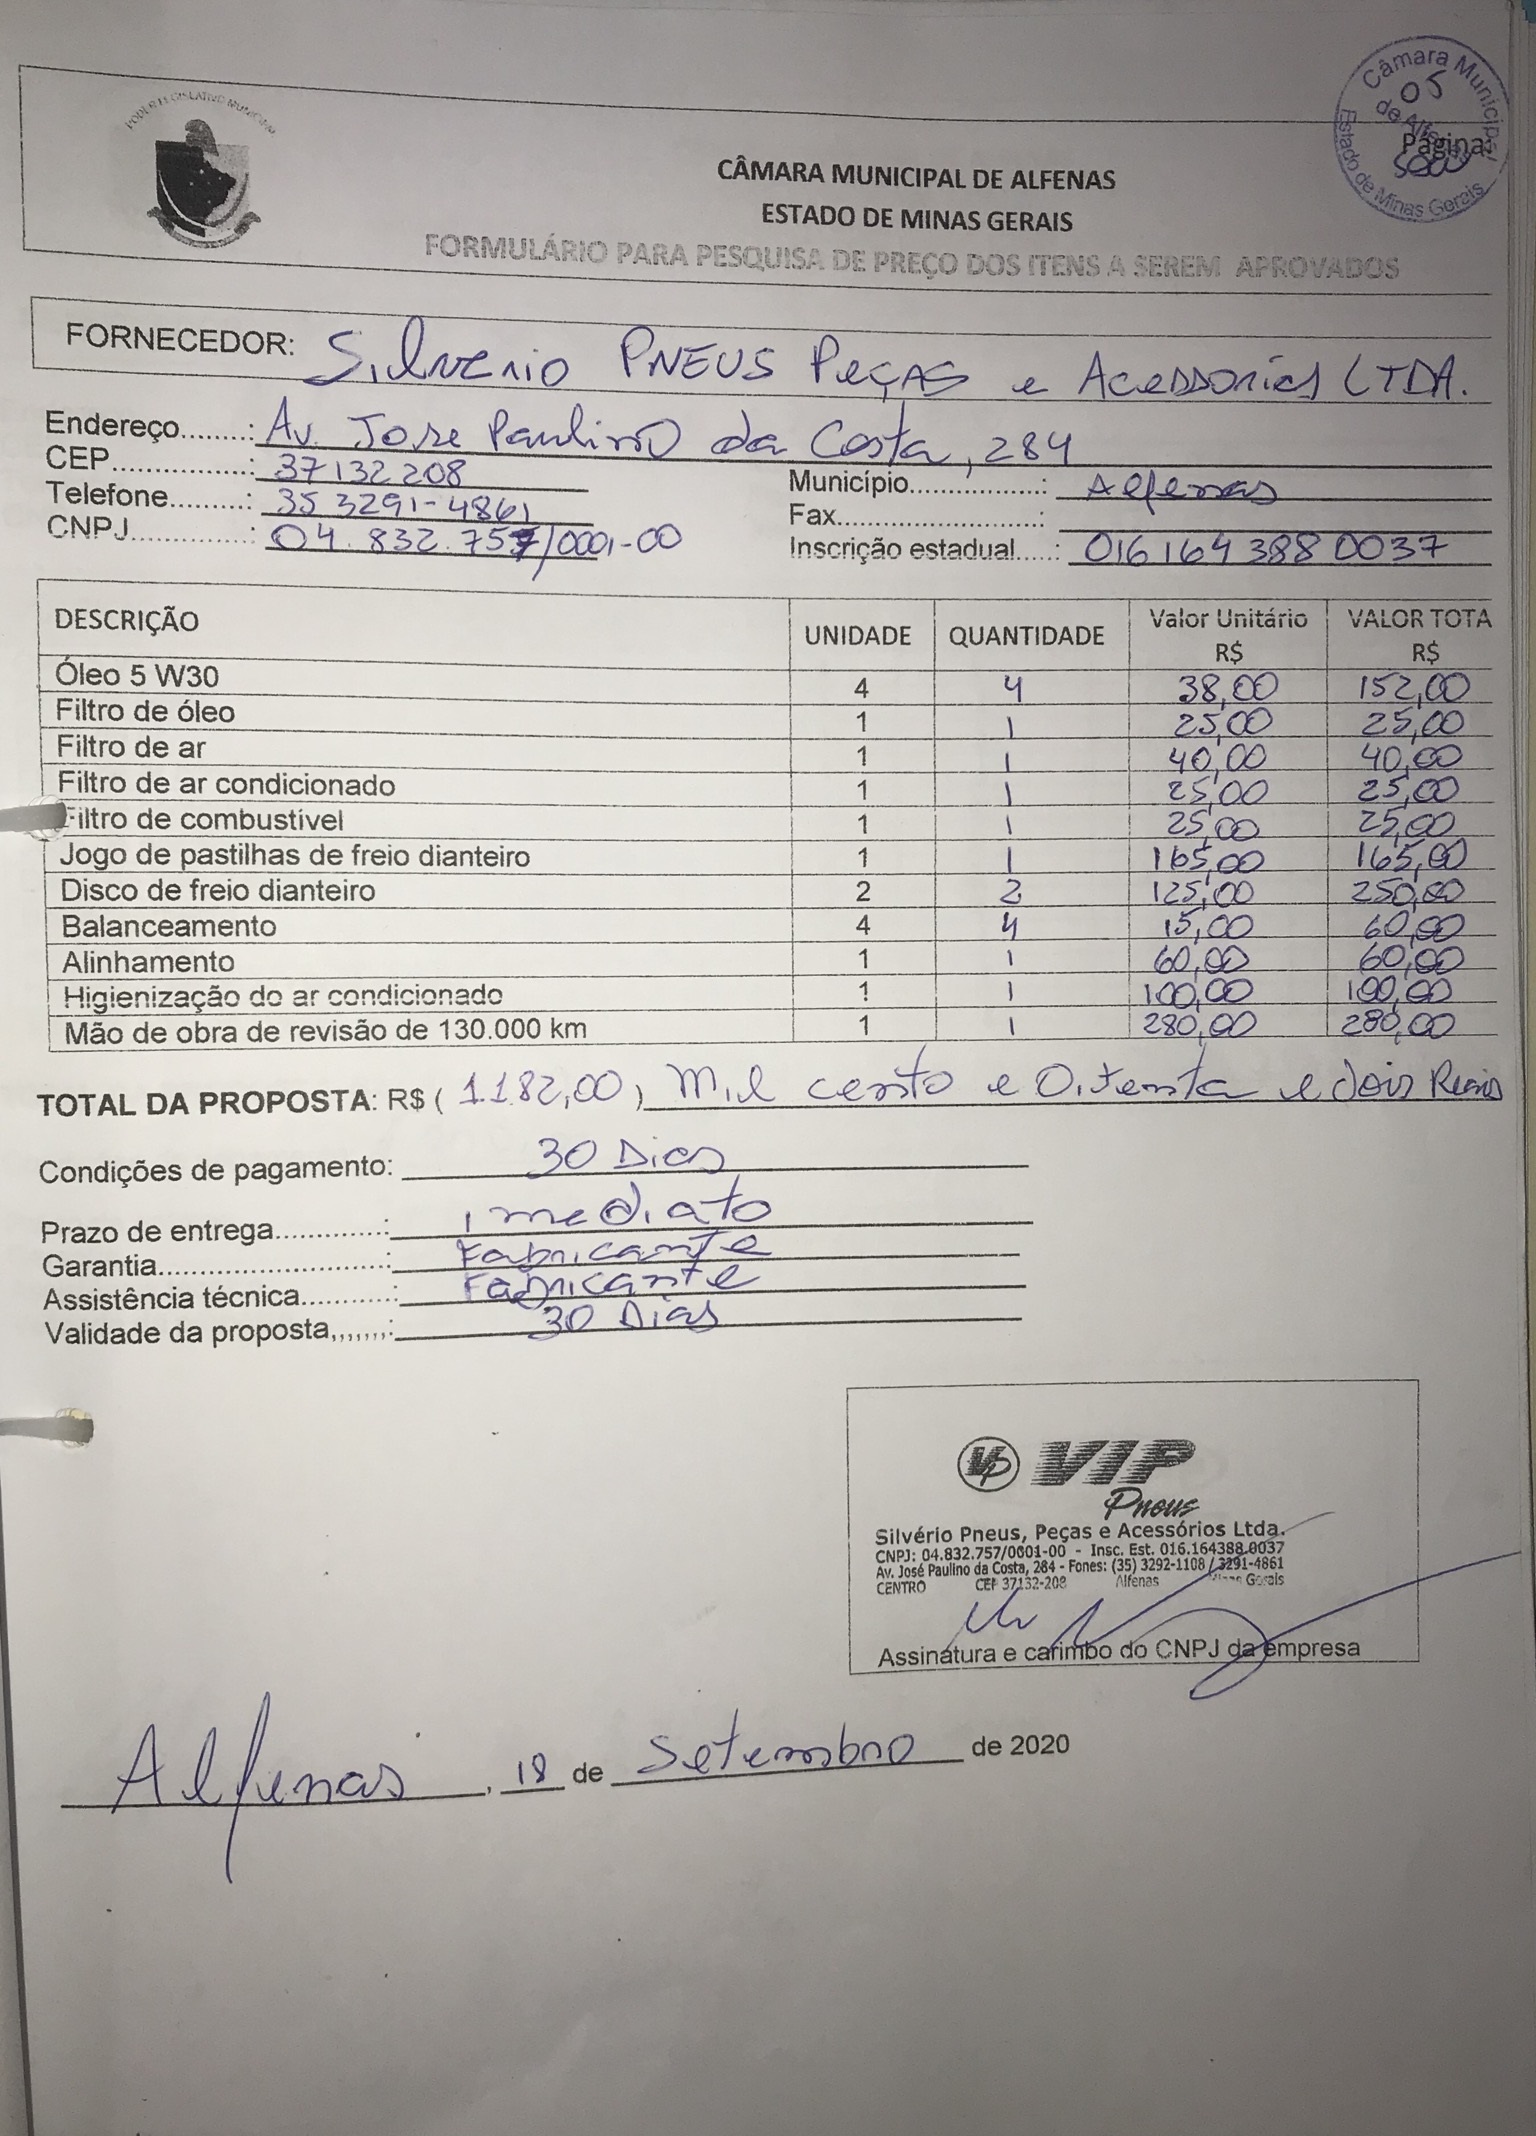 PODER LEGISLATIVO MUNICIPAL
Câmara Municipal
05
de Alfenas
Página:
Estado de Minas Gerais
CÂMARA MUNICIPAL DE ALFENAS
ESTADO DE MINAS GERAIS
FORMULÁRIO PARA PESQUISA DE PREÇO DOS ITENS A SEREM APROVADOS
FORNECEDOR: Silverio PNEUS PeÇAS e Acessories LTDA.
Endereço........: Av. Jose Paulino da Costa, 284
CEP................: 37132208
Município................: Alfenas
Telefone..........: 35 3291-4861
Fax............................:
CNPJ..............: 04.832.757/0001-00
Inscrição estadual.....: 016 164 388 0037
DESCRIÇÃO UNIDADE QUANTIDADE Valor Unitário R$ VALOR TOTA R$
Óleo 5 W30 4 4 38,00 152,00
Filtro de óleo 1 1 25,00 25,00
Filtro de ar 1 1 40,00 40,00
Filtro de ar condicionado 1 1 25,00 25,00
Filtro de combustível 1 1 25,00 25,00
Jogo de pastilhas de freio dianteiro 1 1 165,00 165,00
Disco de freio dianteiro 2 2 125,00 250,00
Balanceamento 4 4 15,00 60,00
Alinhamento 1 1 60,00 60,00
Higienização do ar condicionado 1 1 100,00 100,00
Mão de obra de revisão de 130.000 km 1 1 280,00 280,00
TOTAL DA PROPOSTA: R$ ( 1.182,00 ) Mil cento e Oitenta e dois Reais
Condições de pagamento: 30 Dias
Prazo de entrega.............: imediato
Garantia..........................: Fabricante
Assistência técnica...........: Fabricante
Validade da proposta,,,,,,,: 30 Dias
VP VIP
Pneus
Silvério Pneus, Peças e Acessórios Ltda.
CNPJ: 04.832.757/0001-00 - Insc. Est. 016.164388.0037
Av. José Paulino da Costa, 284 - Fones: (35) 3292-1108 / 3291-4861
CENTRO CEP 37132-208 Alfenas Minas Gerais
Assinatura e carimbo do CNPJ da empresa
Alfenas, 18 de Setembro de 2020